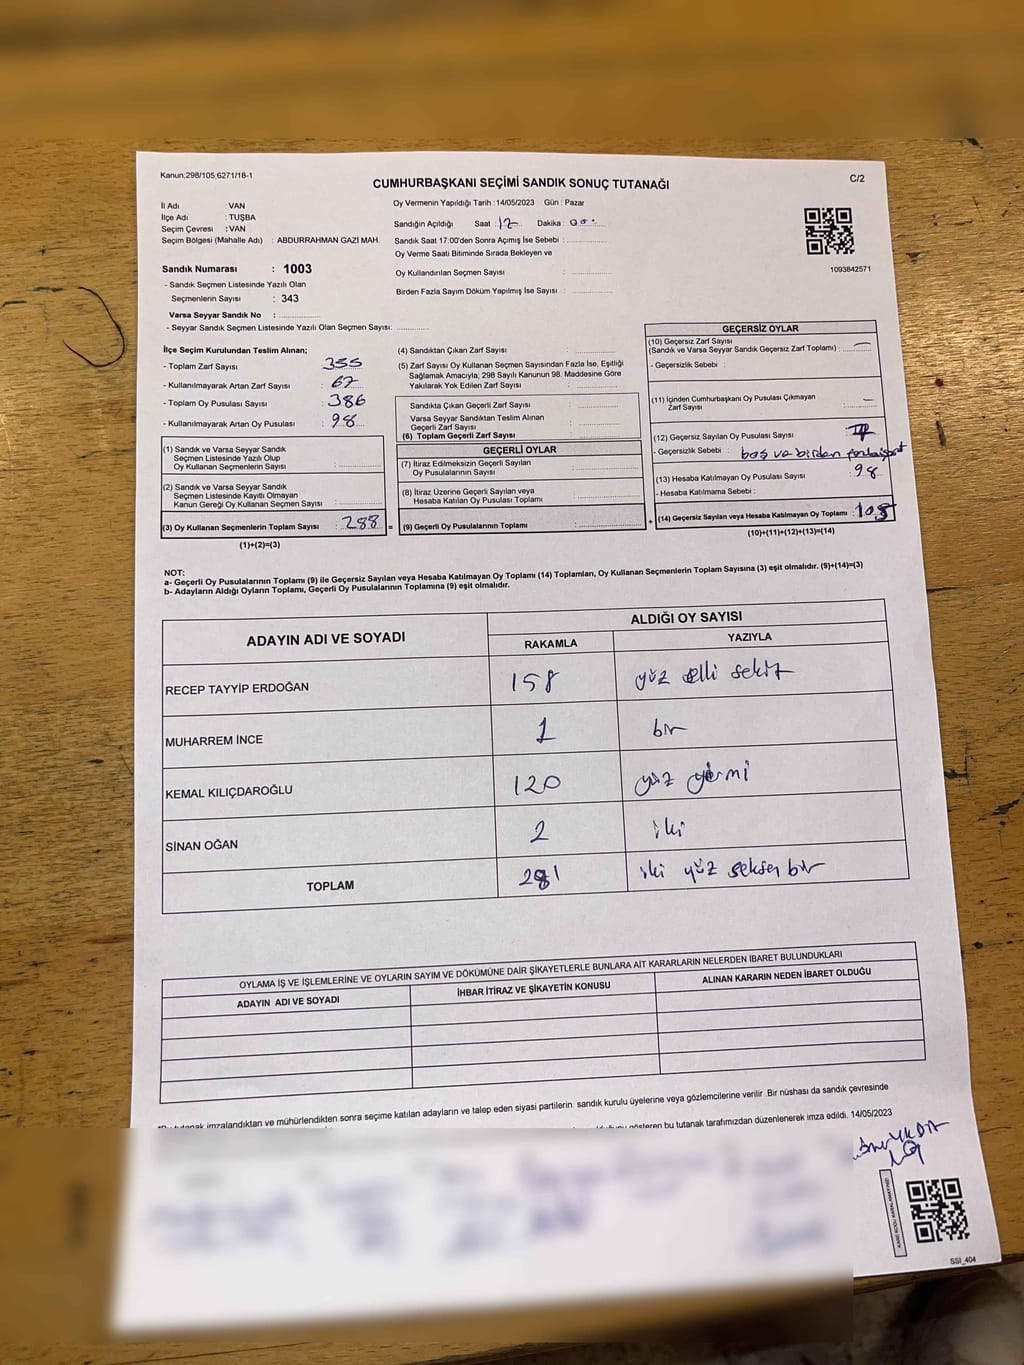 Kanun;298/105;6271/18-1
C/2
CUMHURBAŞKANI SEÇİMİ SANDIK SONUÇ TUTANAĞI
İl Adı : VAN
İlçe Adı : TUŞBA
Seçim Çevresi : VAN
Seçim Bölgesi (Mahalle Adı) : ABDURRAHMAN GAZI MAH.
Oy Vermenin Yapıldığı Tarih : 14/05/2023 Gün : Pazar
Sandığın Açıldığı Saat : 17 Dakika : 00
Sandık Saat 17:00'den Sonra Açımış İse Sebebi :
Oy Verme Saati Bitiminde Sırada Bekleyen ve
Oy Kullandırılan Seçmen Sayısı :
Birden Fazla Sayım Döküm Yapılmış İse Sayısı :
1093842571
Sandık Numarası : 1003
- Sandık Seçmen Listesinde Yazılı Olan
Seçmenlerin Sayısı : 343
Varsa Seyyar Sandık No :
- Seyyar Sandık Seçmen Listesinde Yazılı Olan Seçmen Sayısı:
İlçe Seçim Kurulundan Teslim Alınan;
- Toplam Zarf Sayısı : 355
- Kullanılmayarak Artan Zarf Sayısı : 67
- Toplam Oy Pusulası Sayısı : 386
- Kullanılmayarak Artan Oy Pusulası : 98
(1) Sandık ve Varsa Seyyar Sandık
Seçmen Listesinde Yazılı Olup
Oy Kullanan Seçmenlerin Sayısı :
(2) Sandık ve Varsa Seyyar Sandık
Seçmen Listesinde Kayıtlı Olmayan
Kanun Gereği Oy Kullanan Seçmen Sayısı :
(3) Oy Kullanan Seçmenlerin Toplam Sayısı : 288 =
(1)+(2)=(3)
(4) Sandıktan Çıkan Zarf Sayısı :
(5) Zarf Sayısı Oy Kullanan Seçmen Sayısından Fazla İse, Eşitliği
Sağlamak Amacıyla, 298 Sayılı Kanunun 98. Maddesine Göre
Yakılarak Yok Edilen Zarf Sayısı :
Sandıkta Çıkan Geçerli Zarf Sayısı :
Varsa Seyyar Sandıktan Teslim Alınan
Geçerli Zarf Sayısı :
(6) Toplam Geçerli Zarf Sayısı :
GEÇERLİ OYLAR
(7) İtiraz Edilmeksizin Geçerli Sayılan
Oy Pusulalarının Sayısı :
(8) İtiraz Üzerine Geçerli Sayılan veya
Hesaba Katılan Oy Pusulası Toplamı :
(9) Geçerli Oy Pusulalarının Toplamı : +
GEÇERSİZ OYLAR
(10) Geçersiz Zarf Sayısı
(Sandık ve Varsa Seyyar Sandık Geçersiz Zarf Toplamı) : —
- Geçersizlik Sebebi :
(11) İçinden Cumhurbaşkanı Oy Pusulası Çıkmayan
Zarf Sayısı : —
(12) Geçersiz Sayılan Oy Pusulası Sayısı :
- Geçersizlik Sebebi : boş ve birden
(13) Hesaba Katılmayan Oy Pusulası Sayısı : 98
- Hesaba Katılmama Sebebi :
(14) Geçersiz Sayılan veya Hesaba Katılmayan Oy Toplamı :
(10)+(11)+(12)+(13)=(14)
NOT:
a- Geçerli Oy Pusulalarının Toplamı (9) ile Geçersiz Sayılan veya Hesaba Katılmayan Oy Toplamı (14) Toplamları, Oy Kullanan Seçmenlerin Toplam Sayısına (3) eşit olmalıdır. (9)+(14)=(3)
b- Adayların Aldığı Oyların Toplamı, Geçerli Oy Pusulalarının Toplamına (9) eşit olmalıdır.
ADAYIN ADI VE SOYADI
ALDIĞI OY SAYISI
RAKAMLA YAZIYLA
RECEP TAYYİP ERDOĞAN 158 yüz elli sekiz
MUHARREM İNCE 1 bir
KEMAL KILIÇDAROĞLU 120 yüz yirmi
SİNAN OĞAN 2 iki
TOPLAM 281 iki yüz seksen bir
OYLAMA İŞ VE İŞLEMLERİNE VE OYLARIN SAYIM VE DÖKÜMÜNE DAİR ŞİKAYETLERLE BUNLARA AİT KARARLARIN NELERDEN İBARET BULUNDUKLARI
ADAYIN ADI VE SOYADI İHBAR İTİRAZ VE ŞİKAYETİN KONUSU ALINAN KARARIN NEDEN İBARET OLDUĞU
tutanak imzalandıktan ve mühürlendikten sonra seçime katılan adayların ve talep eden siyasi partilerin sandık kurulu üyelerine veya gözlemcilerine verilir. Bir nüshası da sandık çevresinde
gösteren bu tutanak tarafımızdan düzenlenerek imza edildi. 14/05/2023
SSI_404